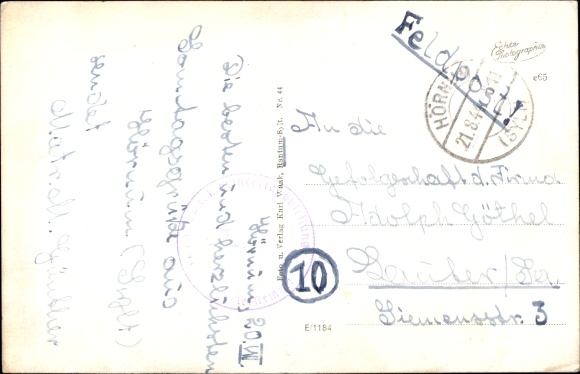 Feldpost!
Echte
Photographie
e65
HÖRNUM
(SYLT)
21.8.4
Hörnum, 20.VIII.
Die besten und herzlichsten
Sonntagsgrüße aus
Hörnum (Sylt)
sendet
Matr. M. Günther
Foto u. Verlag Karl Waak, Rantum-Sylt. Nr. 44
An die
Gefolgschaft d. Firma
Adolph Göthel
Lauter/Sa.
Siemensstr. 3
10
E/1184